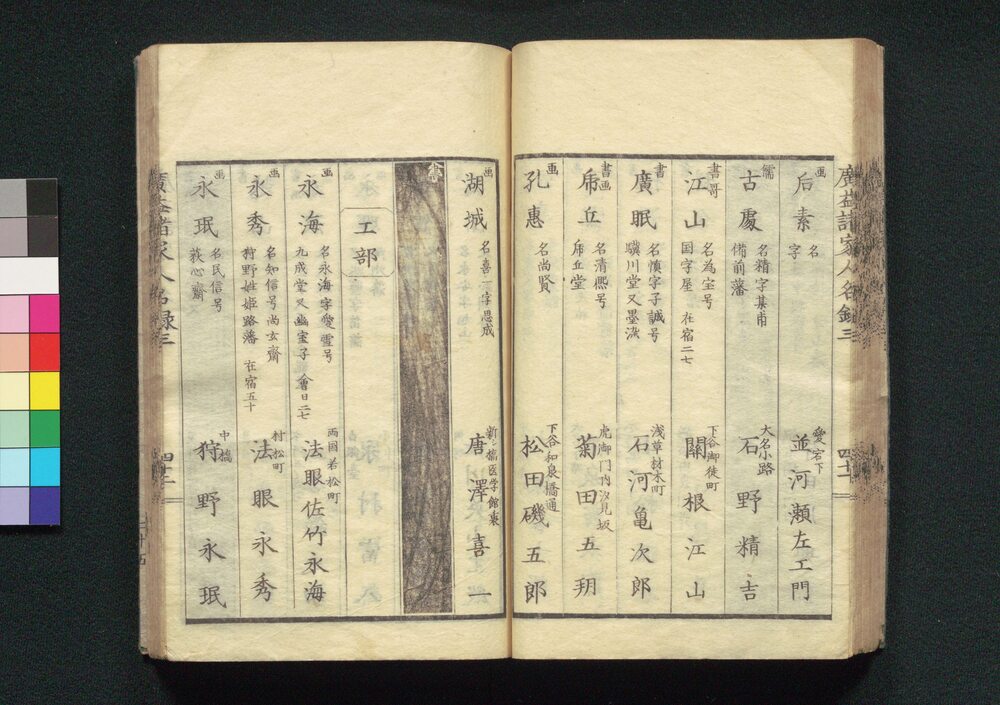 廣益諸家人名録三
四十一
画
后素
名
字
愛宕下
並河瀬左エ門
儒
古處
名精字其甫
備前藩
大名小路
石野精吉
書哥
江山
名為宝号
国字屋 在宿二七
下谷御徒町
關根江山
書
廣眠
名慎字子誠号
驥川堂又墨
浅草材木町
石河亀次郎
書画
乕丘
名清熈号
乕丘堂
虎御門内汐見坂
菊田五玥
画
孔惠
名尚賢
下谷和泉橋通
松田磯五郎
画
湖城
名喜一字思成
新シ橋医学館裏
唐澤喜一
工部
画
永海
名永海字愛雪号
九成堂又幽室子 會日二七
両国若松町
法眼佐竹永海
画
永秀
名知信号尚玄齋
狩野姓姫路藩 在宿五十
村松町
法眼永秀
画
永珉
名民信号
荻心齋
中橋
狩野永珉
廣益諸家人名録三
四十二